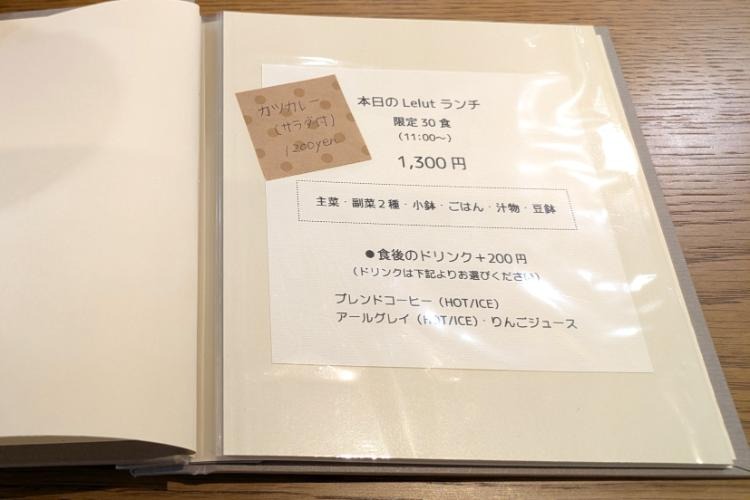 カツカレー
(サラダ付)
1200yen
本日の Lelut ランチ
限定 30 食
(11:00～)
1,300 円
主菜・副菜２種・小鉢・ごはん・汁物・豆鉢
●食後のドリンク＋200 円
(ドリンクは下記よりお選びください)
ブレンドコーヒー (HOT/ICE)
アールグレイ (HOT/ICE)・りんごジュース